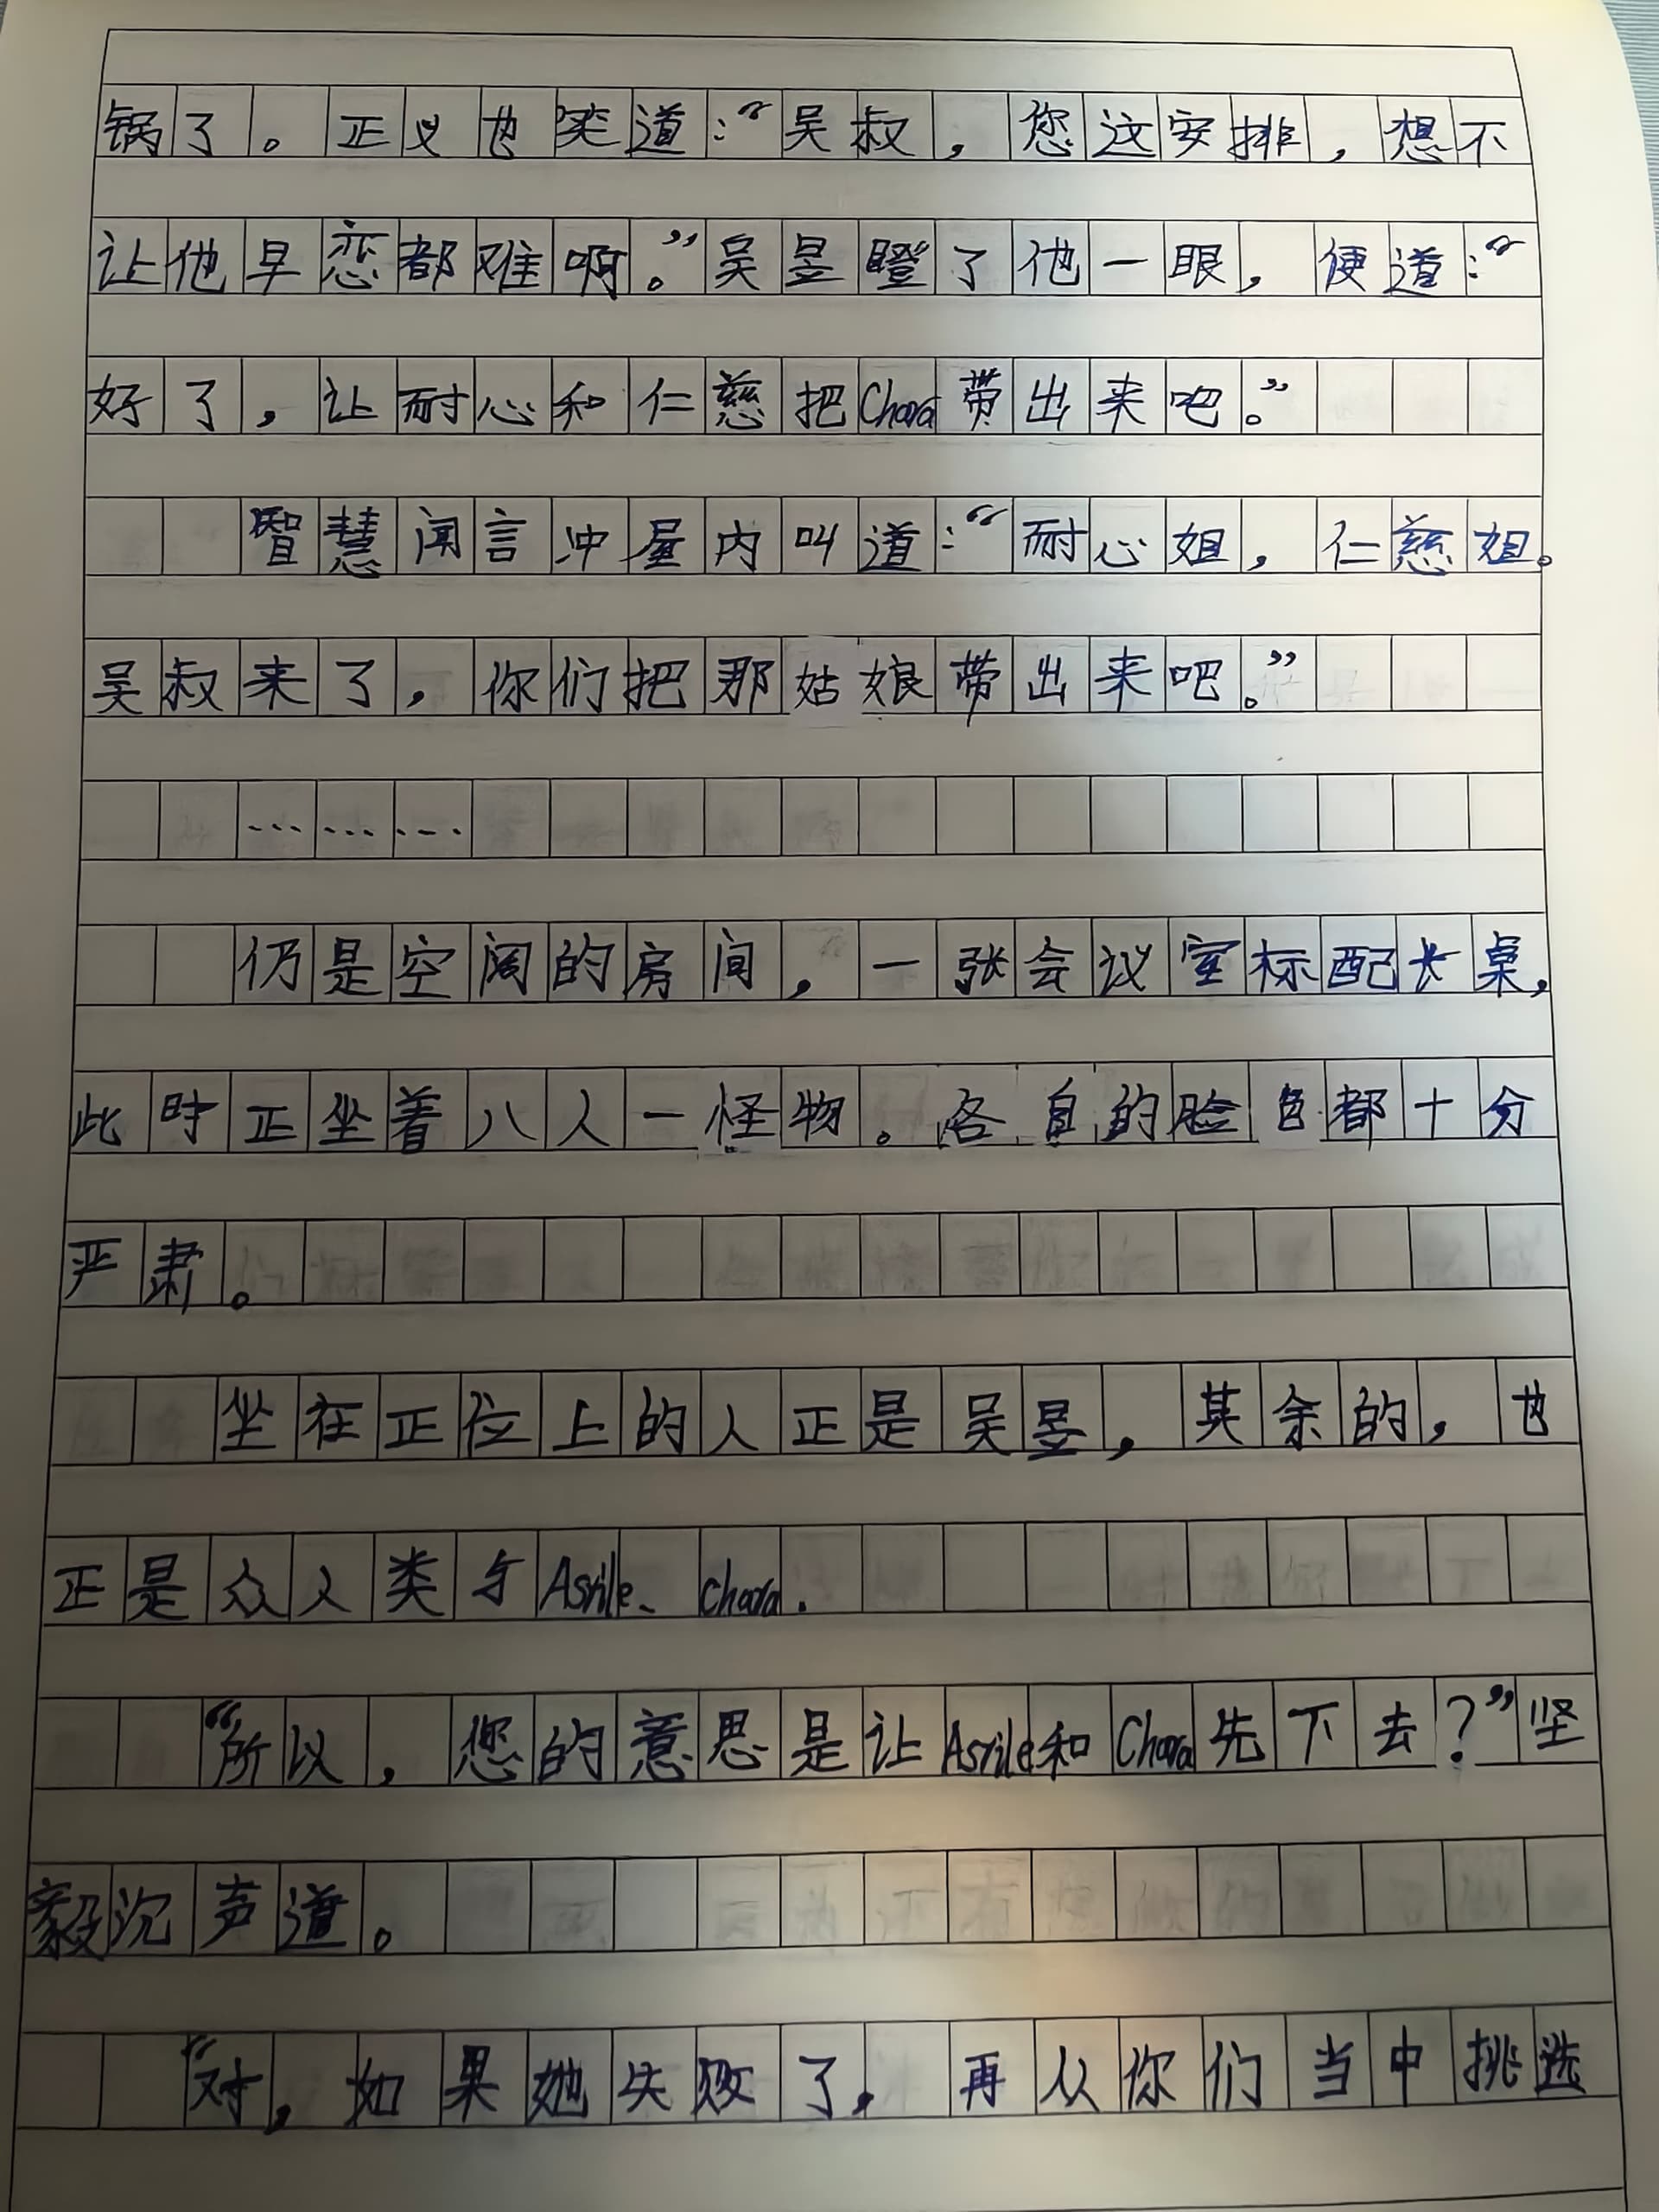 锅了。正义也笑道：“吴叔，您这安排，想不
让他早恋都难啊。”吴昱瞪了他一眼，便道：“
好了，让耐心和仁慈把Chara带出来吧。”
智慧闻言冲屋内叫道：“耐心姐，仁慈姐。
吴叔来了，你们把那姑娘带出来吧。”
………
仍是空阔的房间，一张会议室标配长桌，
此时正坐着八人一怪物。各自的脸色都十分
严肃。
坐在正位上的人正是吴昱，其余的，也
正是众人类与Asrile、Chara.
“所以，您的意思是让Asrile和Chara先下去？”坚
毅沉声道。
“对，如果她失败了，再从你们当中挑选